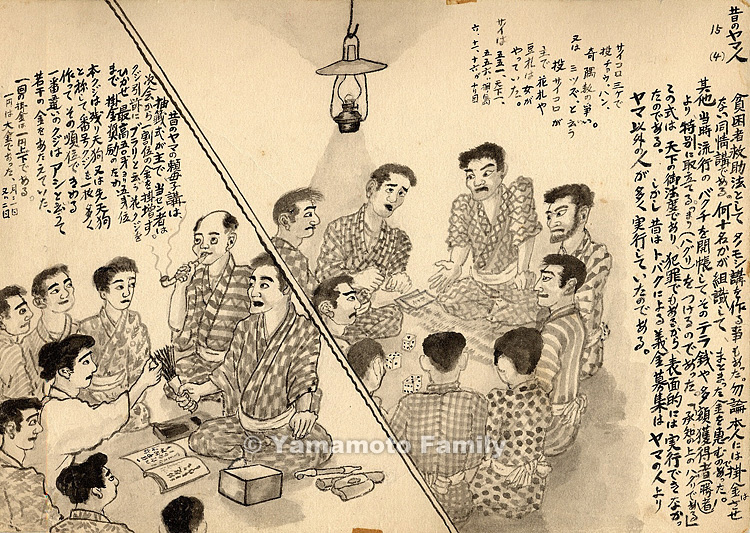 昔のヤマ人
15
(4)
貧困者救助法として、タノモシ講を作る事もあった勿論本人には掛金させ
ない同情講である。何十名かが組識して、まとまった金を恵むのであった。
其他、当時流行のバクチを開帳して、そのテラ銭や多額獲得者(勝者)
より特別に取立てる。つまり(ハグリ)をつけるのであった「承知の上のハグである」
この式は天下の御法度であり犯罪でもあるから表面的には実行できなかっ
たのである。しかし昔はトバクによる義金募集はヤマの人より
ヤマ以外の人が多く実行していたのである。
サイコロ二ケで
投チョウハン、
奇隅数の争い。
又は ミツズと云う
投サイコロが
主で花札や
豆札は女が
やっていた。
サイは 五五一天下一、
昔のヤマの頼母子講は
抽籤式が主で、当せん者は
次会から二割位の金を掛増す。
クジ引許に「ブラリ」と云う花クジを
ひかせ 最高五十銭
まで 掛金奨励のため
本クジは残り天狗又は先天狗
と称して番号クジを 多人
作ってその順位できめる
一番違いのクジはアシと云って
若干の金をあたえていた、
一回の掛金は一円上下である。
一円は大金であった、
© Yamamoto Family